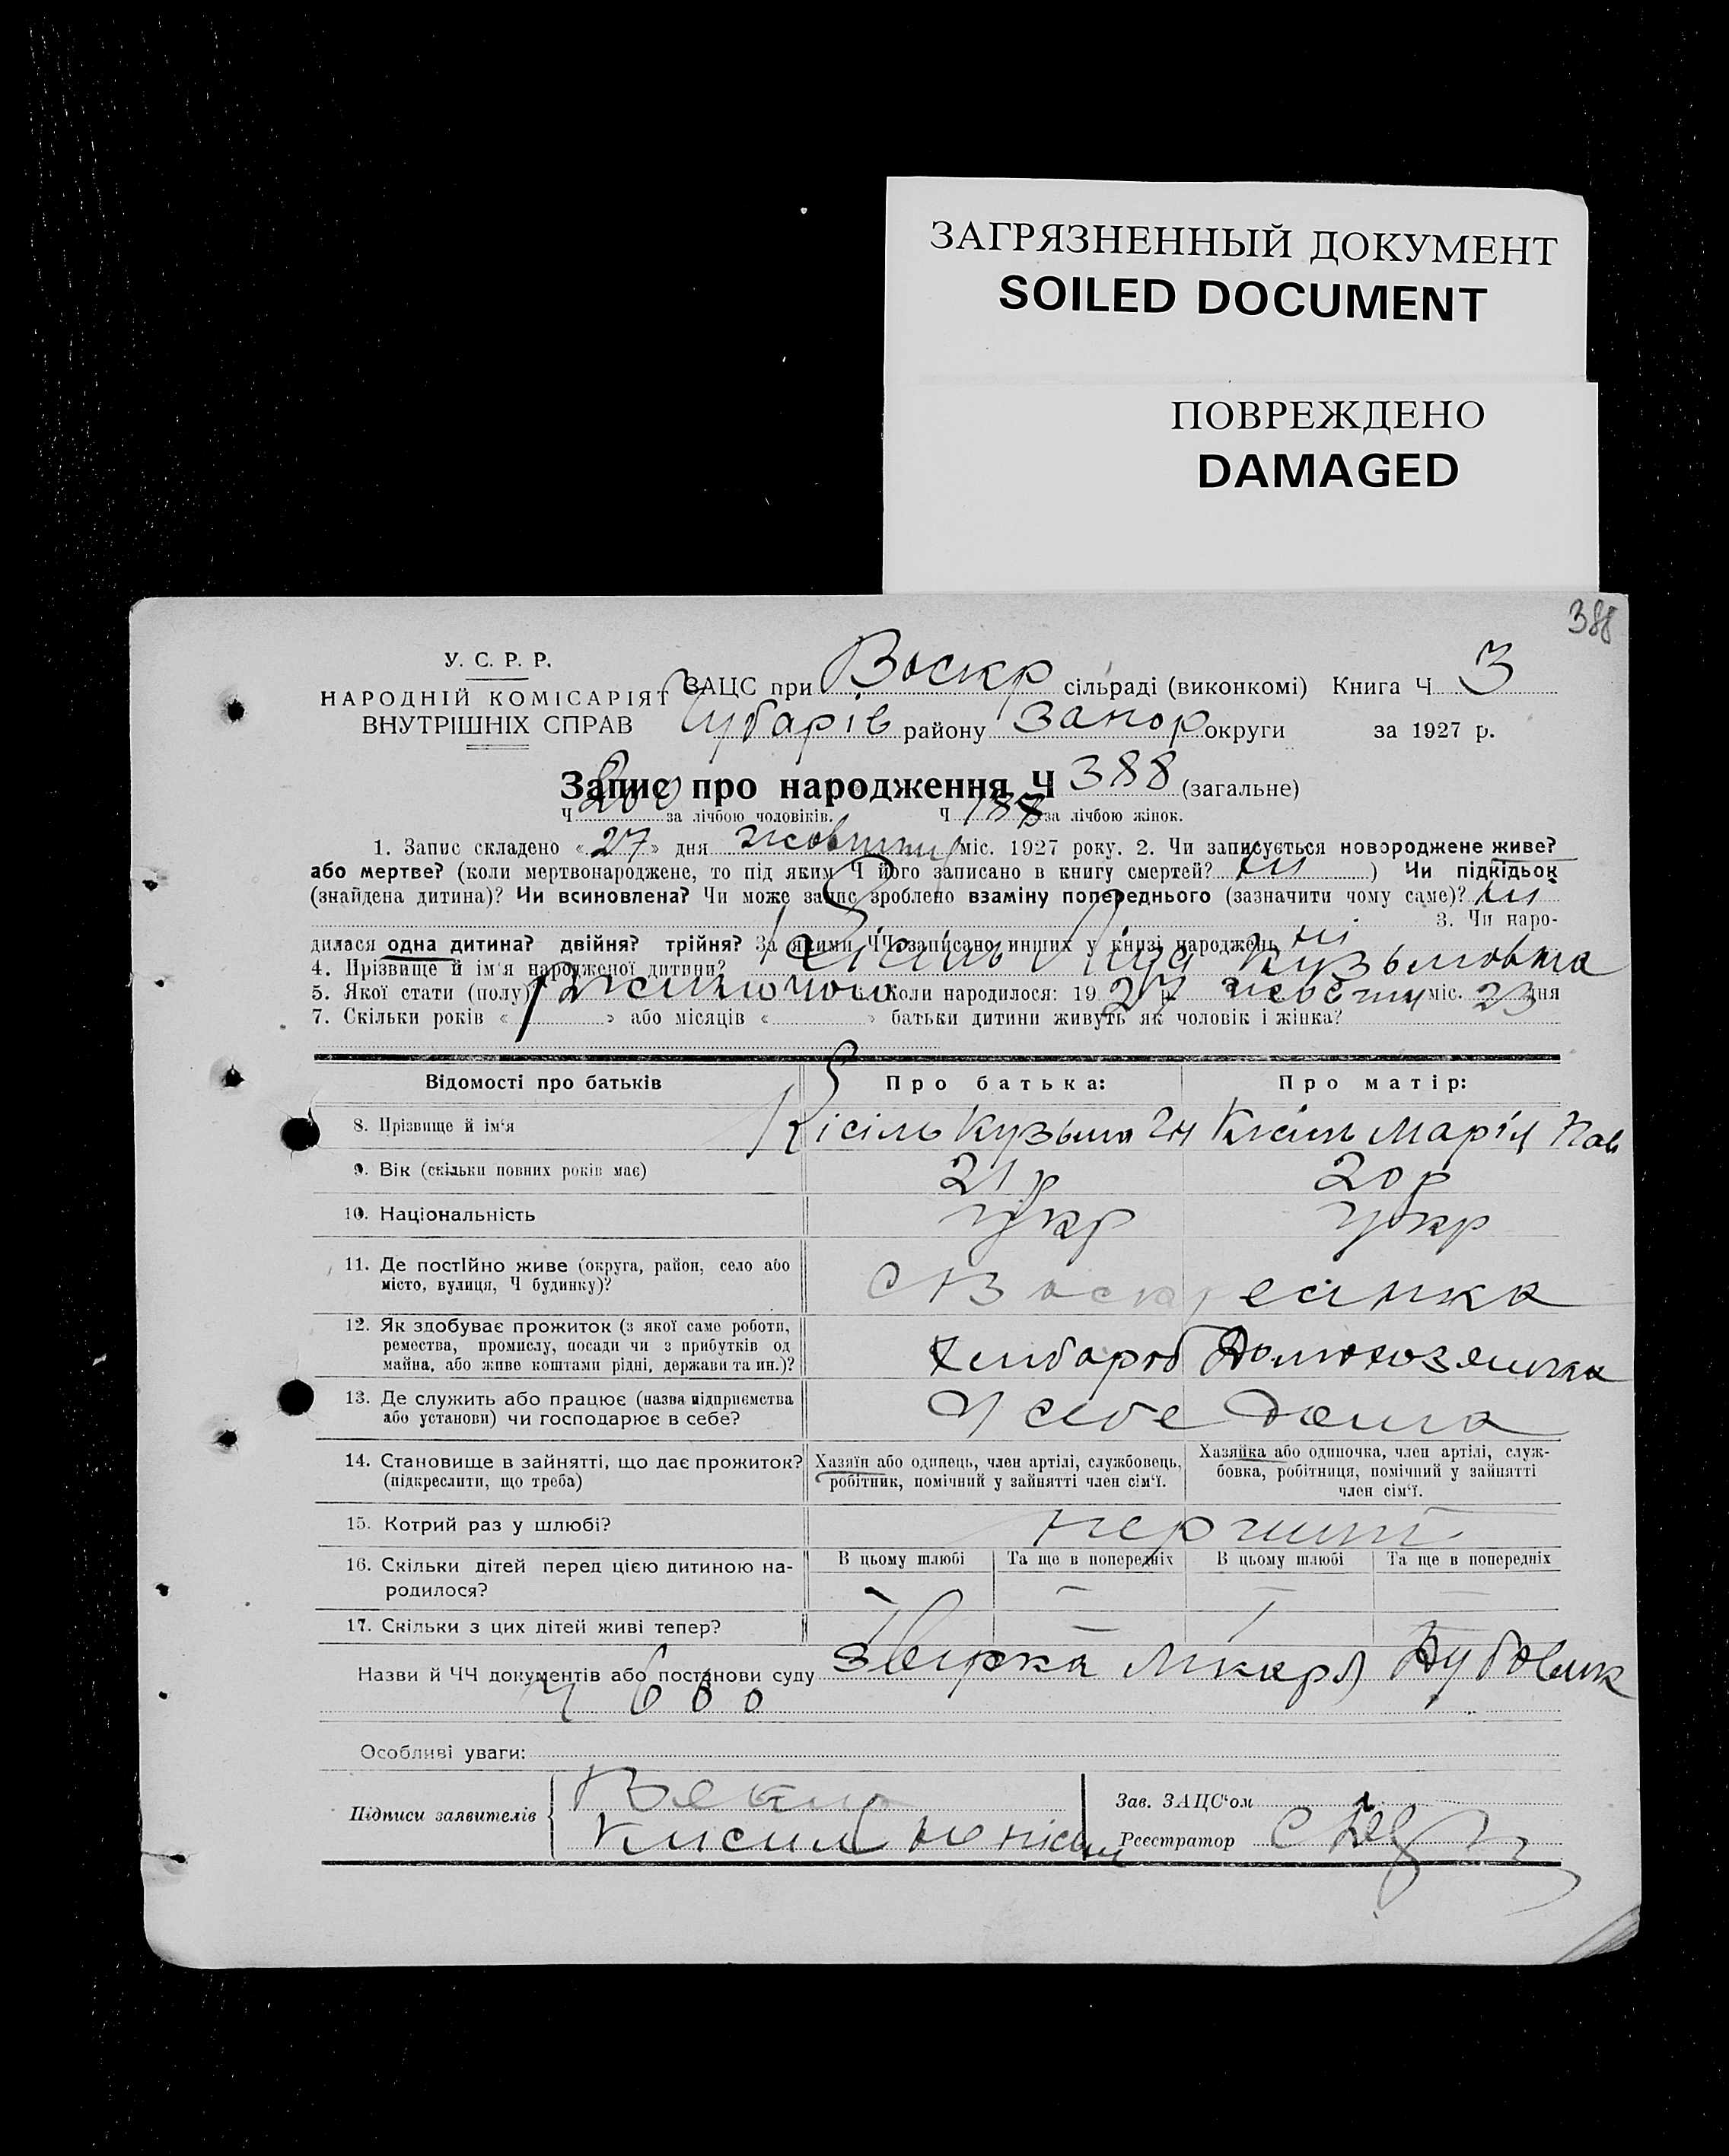 ЗАГРЯЗНЕННЫЙ ДОКУМЕНТ
SOILED DOCUMENT
ПОВРЕЖДЕНО
DAMAGED
388
У. С. Р. Р.
НАРОДНІЙ КОМІСАРІЯТ
ВНУТРІШНІХ СПРАВ
ЗАЦС при Воскр сільраді (виконкомі) Книга Ч 3
Чубарів району Запор округи за 1927 р.
Запис про народження Ч 388 (загальне)
Ч 200 за лічбою чоловіків. Ч 188 за лічбою жінок.
1. Запис складено «27» дня жовтня міс. 1927 року. 2. Чи записується новороджене живе?
або мертве? (коли мертвонароджене, то під яким Ч його записано в книгу смертей? ні ) Чи підкідьок
(знайдена дитина)? Чи всиновлена? Чи може запис зроблено взаміну попереднього (зазначити чому саме)? ні
3. Чи наро-
дилася одна дитина? двійня? трійня? За якими ЧЧ записано инших у книзі народжень ні
4. Прізвище й ім'я народженої дитини? Кісіль Кузьмовна
5. Якої стати (полу) Жіночого Коли народилося: 1927 р. міс. 23 дня
7. Скільки років « » або місяців « » батьки дитини живуть як чоловік і жінка?
Відомості про батьків Про батька: Про матір:
8. Прізвище й ім'я Кісіль Кузьма Кісіль Марія Пав
9. Вік (скільки повних років має) 21 р 20 р
10. Національність укр укр
11. Де постійно живе (округа, район, село або
місто, вулиця, Ч будинку)? с Воскресінка
12. Як здобуває прожиток (з якої саме роботи,
ремества, промислу, посади чи з прибутків од
майна, або живе коштами рідні, держави та ин.)? Хлібороб
13. Де служить або працює (назва підприємства
або установи) чи господарює в себе? У себе дома
14. Становище в зайнятті, що дає прожиток?
(підкреслити, що треба)
Хазяїн або одинець, член артілі, службовець,
робітник, помічний у зайнятті член сім'ї.
Хазяйка або одиночка, член артілі, служ-
бовка, робітниця, помічний у зайнятті
член сім'ї.
15. Котрий раз у шлюбі? перший
16. Скільки дітей перед цією дитиною на-
родилося?
В цьому шлюбі Та ще в попередніх В цьому шлюбі Та ще в попередніх
17. Скільки з цих дітей живі тепер?
Назви й ЧЧ документів або постанови суду
Особливі уваги:
Підписи заявителів
Кисиль
Зав. ЗАЦС'ом
Реєстратор